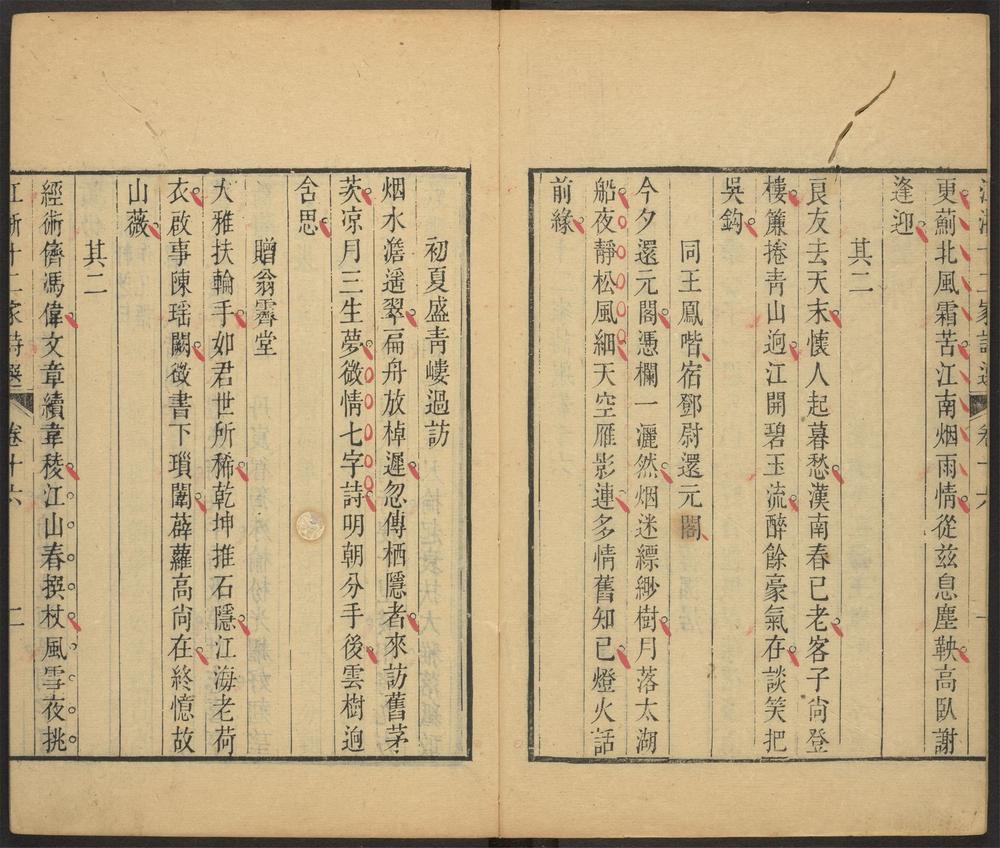 更薊北風霜苦江南烟雨情從兹息塵鞅高臥謝
逢迎
其二
良友去天末懷人起暮愁漢南春已老客子尙登
樓簾捲青山逈江開碧玉流醉餘豪氣存談笑把
吳鈎
同王鳳喈宿鄧尉還元閣
今夕還元閣憑欄一灑然烟迷縹緲樹月落太湖
船夜靜松風細天空雁影連多情舊知已燈火話
前緣
初夏盛青嶁過訪
烟水澹遥翠扁舟放棹遲忽傳栖隱者來訪舊茅
茨凉月三生夢微情七字詩明朝分手後雲樹逈
含思
贈翁霽堂
大雅扶輪手如君世所稀乾坤推石隱江海老荷
衣啟事陳瑶闕徵書下瑣闈薜蘿高尙在終憶故
山薇
其二
經術儕馮偉文章續韋稜江山春撰杖風雪夜挑
江浙十二家詩選 卷十六 二